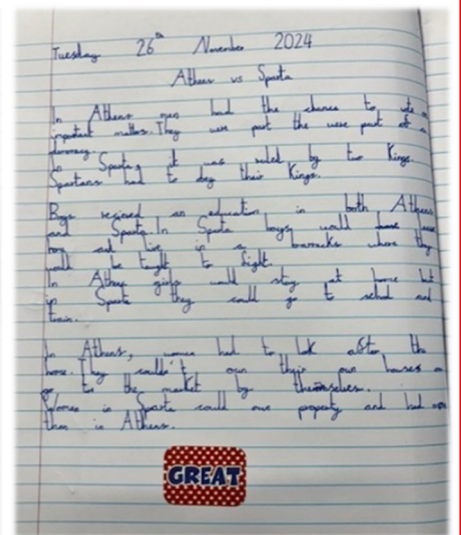 Tuesday 26th November 2024
Athens vs Sparta
In Athens men had the chance to vote on
important matters. They were part the were part of a
democracy.
In Sparta, it was ruled by two Kings.
Spartans had to obey their Kings.
Boys recieved an education in both Athens
and Sparta. In Sparta boys would leave
home and live in a barracks where they
would be taught to fight.
In Athens girls would stay at home but
in Sparta they could go to school and
train.
In Athens, women had to look after the
home. They couldn't own their own houses or
go to the market by themselves.
Women in Sparta could own property and had
than in Athens.
GREAT